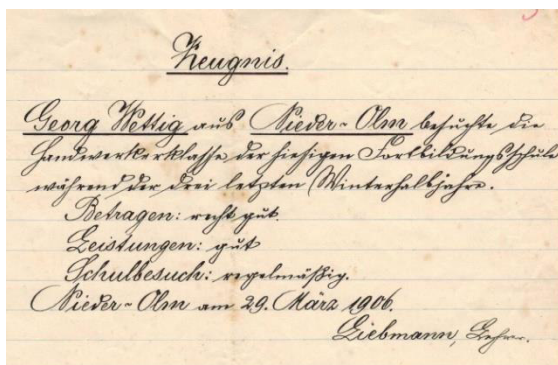 Zeugnis.
Georg Wettig aus Nieder-Olm besuchte die
Handwerkerklasse der hiesigen Fortbildungsschule
während der drei letzten Winterhalbjahre.
Betragen: recht gut.
Leistungen: gut
Schulbesuch: regelmäßig.
Nieder-Olm am 29. März 1906.
Liebmann, Lehrer.